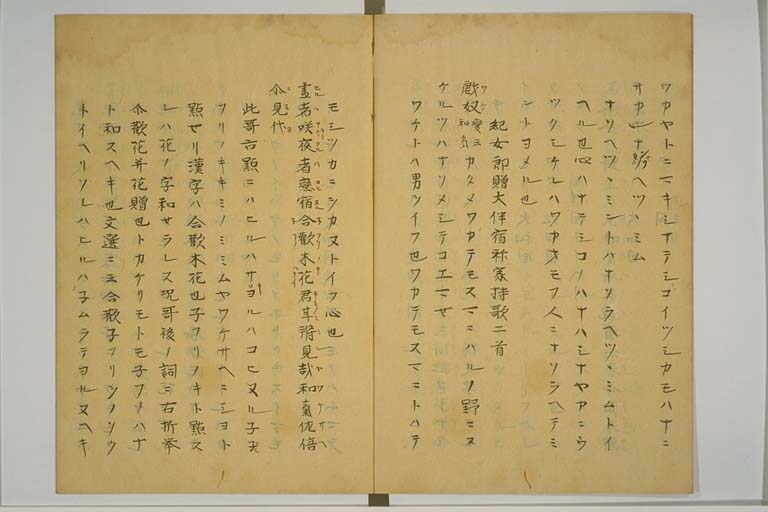 ワカヤトニマキシナテシコイツシカモハナニ
サカナムナソヘツヽミム
ナソヘツヽミントハナソラヘツヽミムトイ
ヘル也心ハナテシコノハナハハシナヤカニウ
ツクシケレハワカオモフ人ニナソラヘテミ
ントヨメル也
紀女郎贈大伴宿祢家持歌二首
戯奴 変云和気 カタメワカテモスマニハルノ野ニヌ
ケルツハナソメシテコエマセ
ワケトハ男ヲイフ也ワカテモスマニトハテ
モミツカニシカヌトイフ心也
昼者咲夜者恋宿合歓木花君耳将見哉和気佐倍
尓見代
此哥古點ニハヒルハサキヨルハコヒヌル子フ
フリノキキミノミミムヤワケサヘニミヨト
點セリ漢字ハ合歓木花也子フリノキト點ス
レハ花ノ字和セラレス況哥後ノ詞ニ右折挙
合歓花并花贈也トカケリモトモ子フノハナ
ト和スヘキ也文選ニ云合歓
トイヘリソレハヒルハ